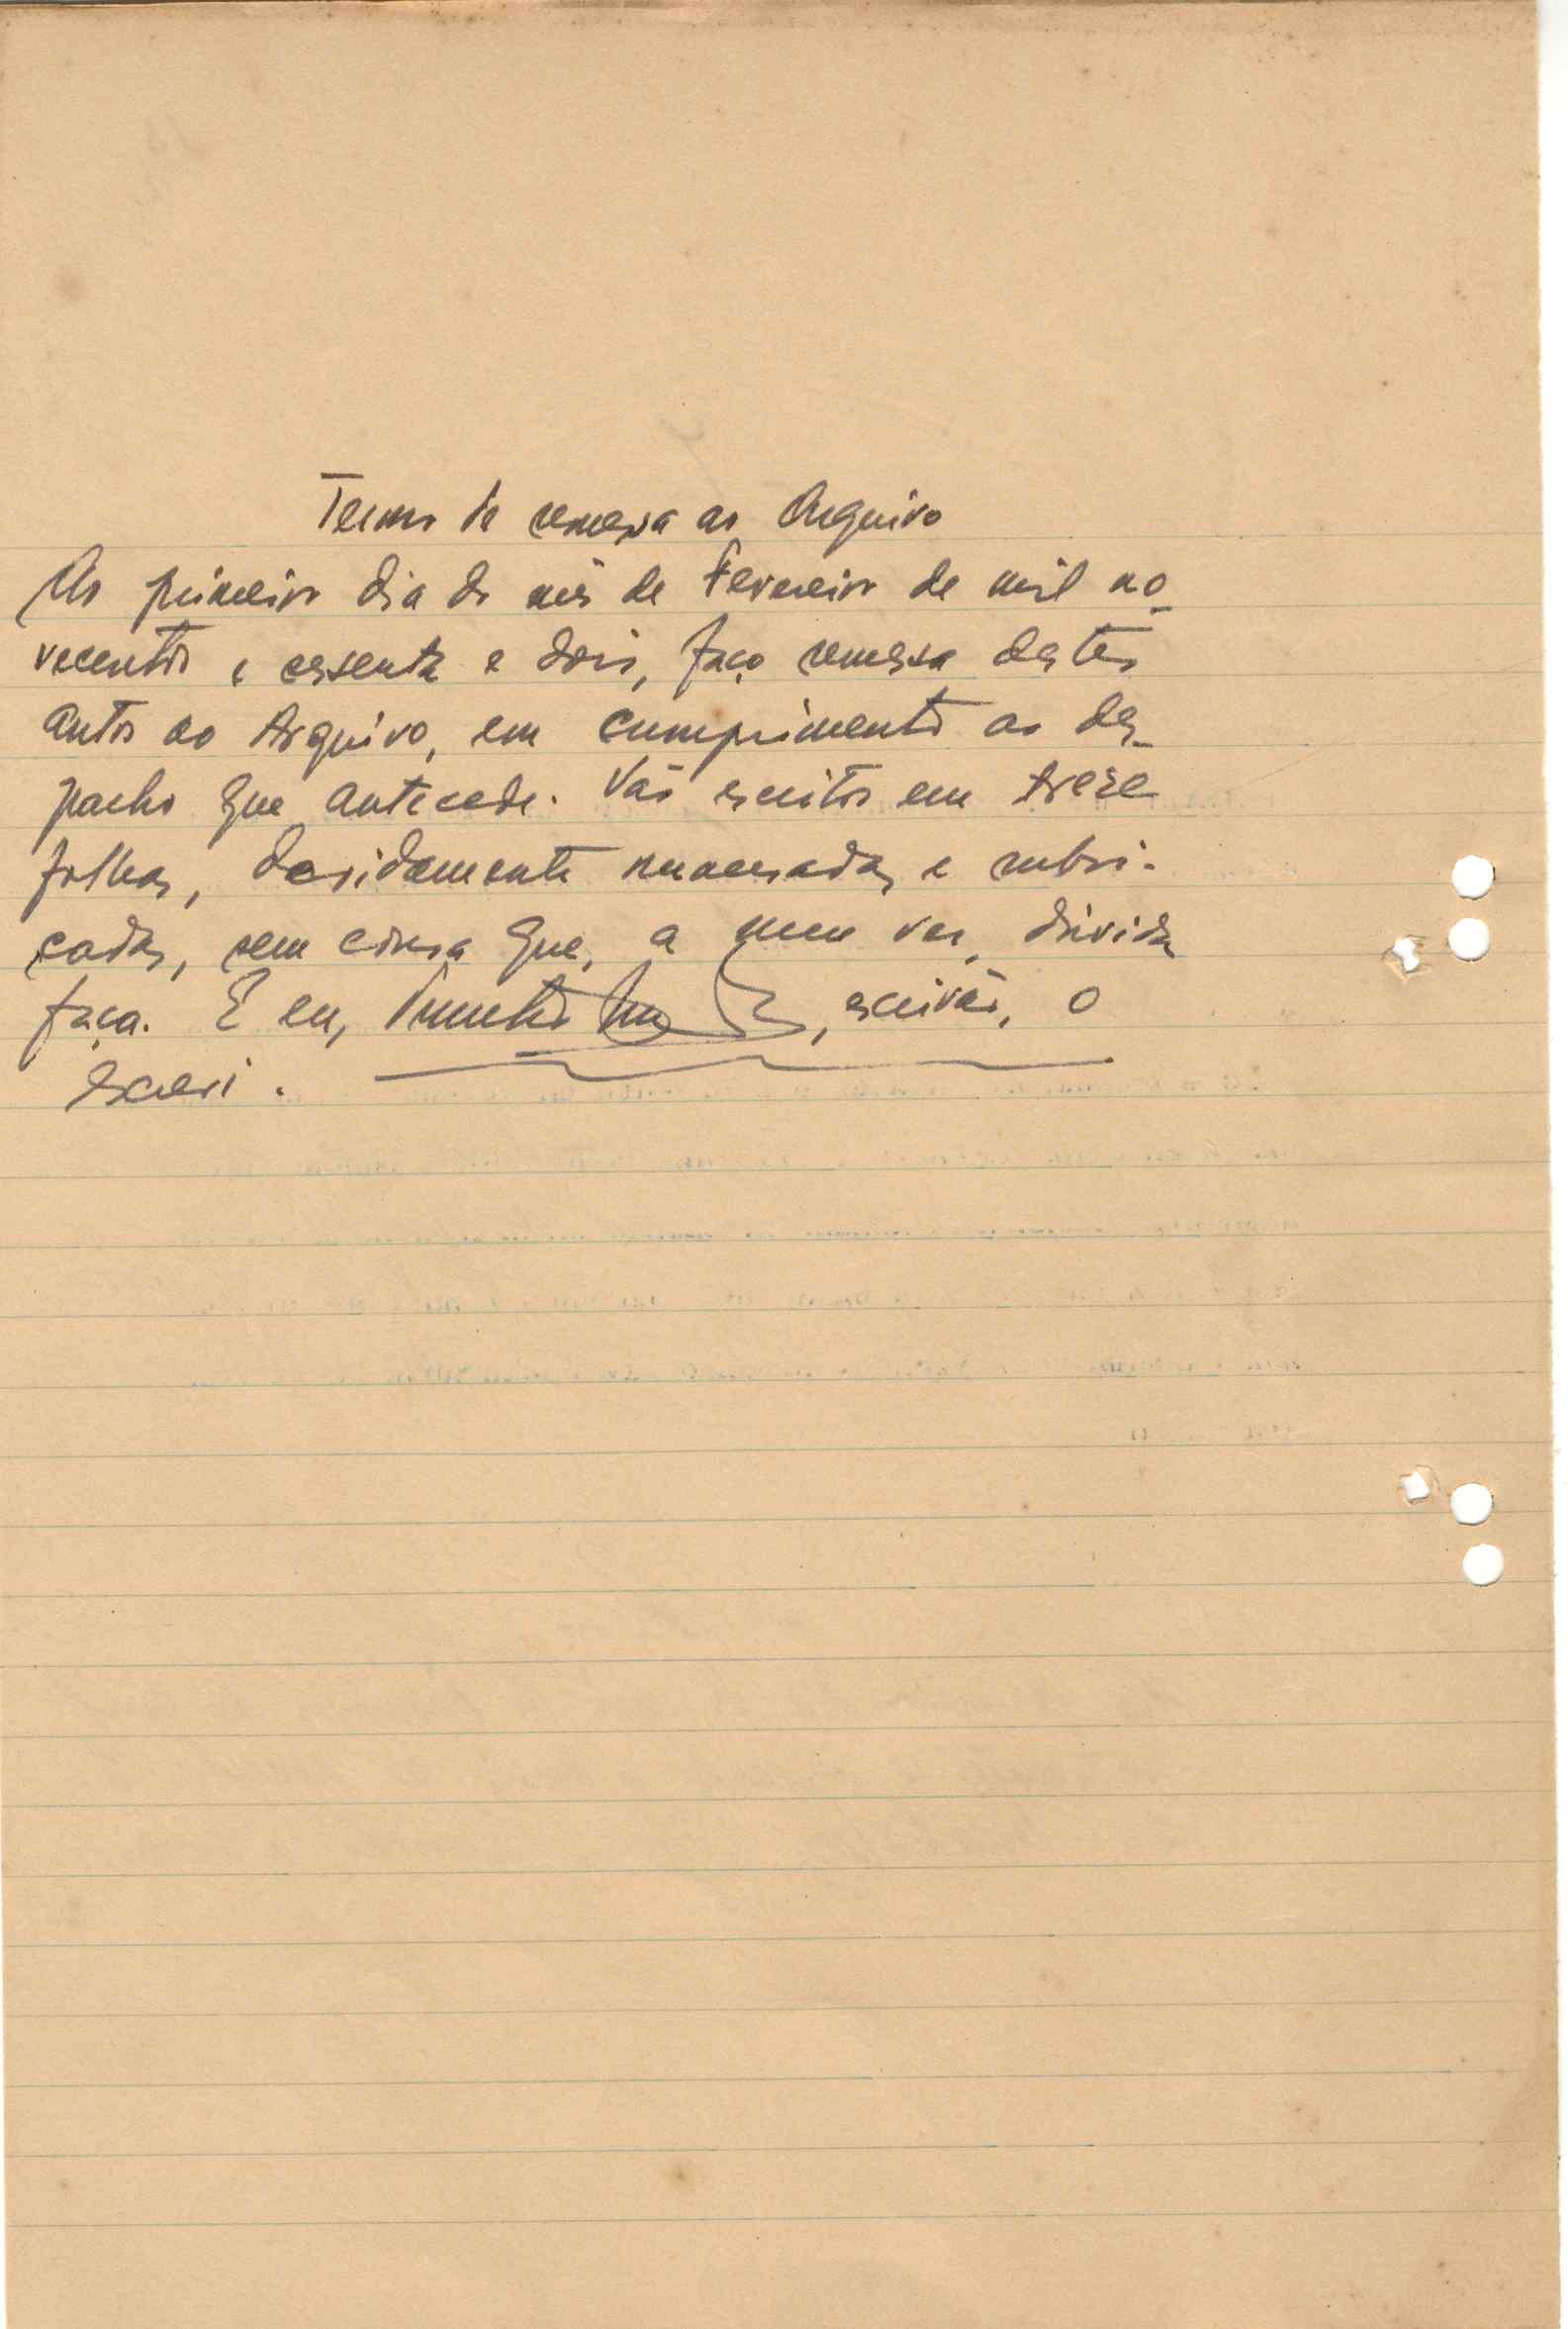 Termo de remessa ao Arquivo
Ao primeiro dia do mês de Fevereiro de mil no-
vecentos e sessenta e dois, faço remessa destes
autos ao Arquivo, em cumprimento ao des-
pacho que antecede. Vão escritos em treze
folhas, devidamente numeradas e rubri-
cadas, sem coisa que, a meu ver, dúvida
faça. E eu, , escrivão, o
escrevi.